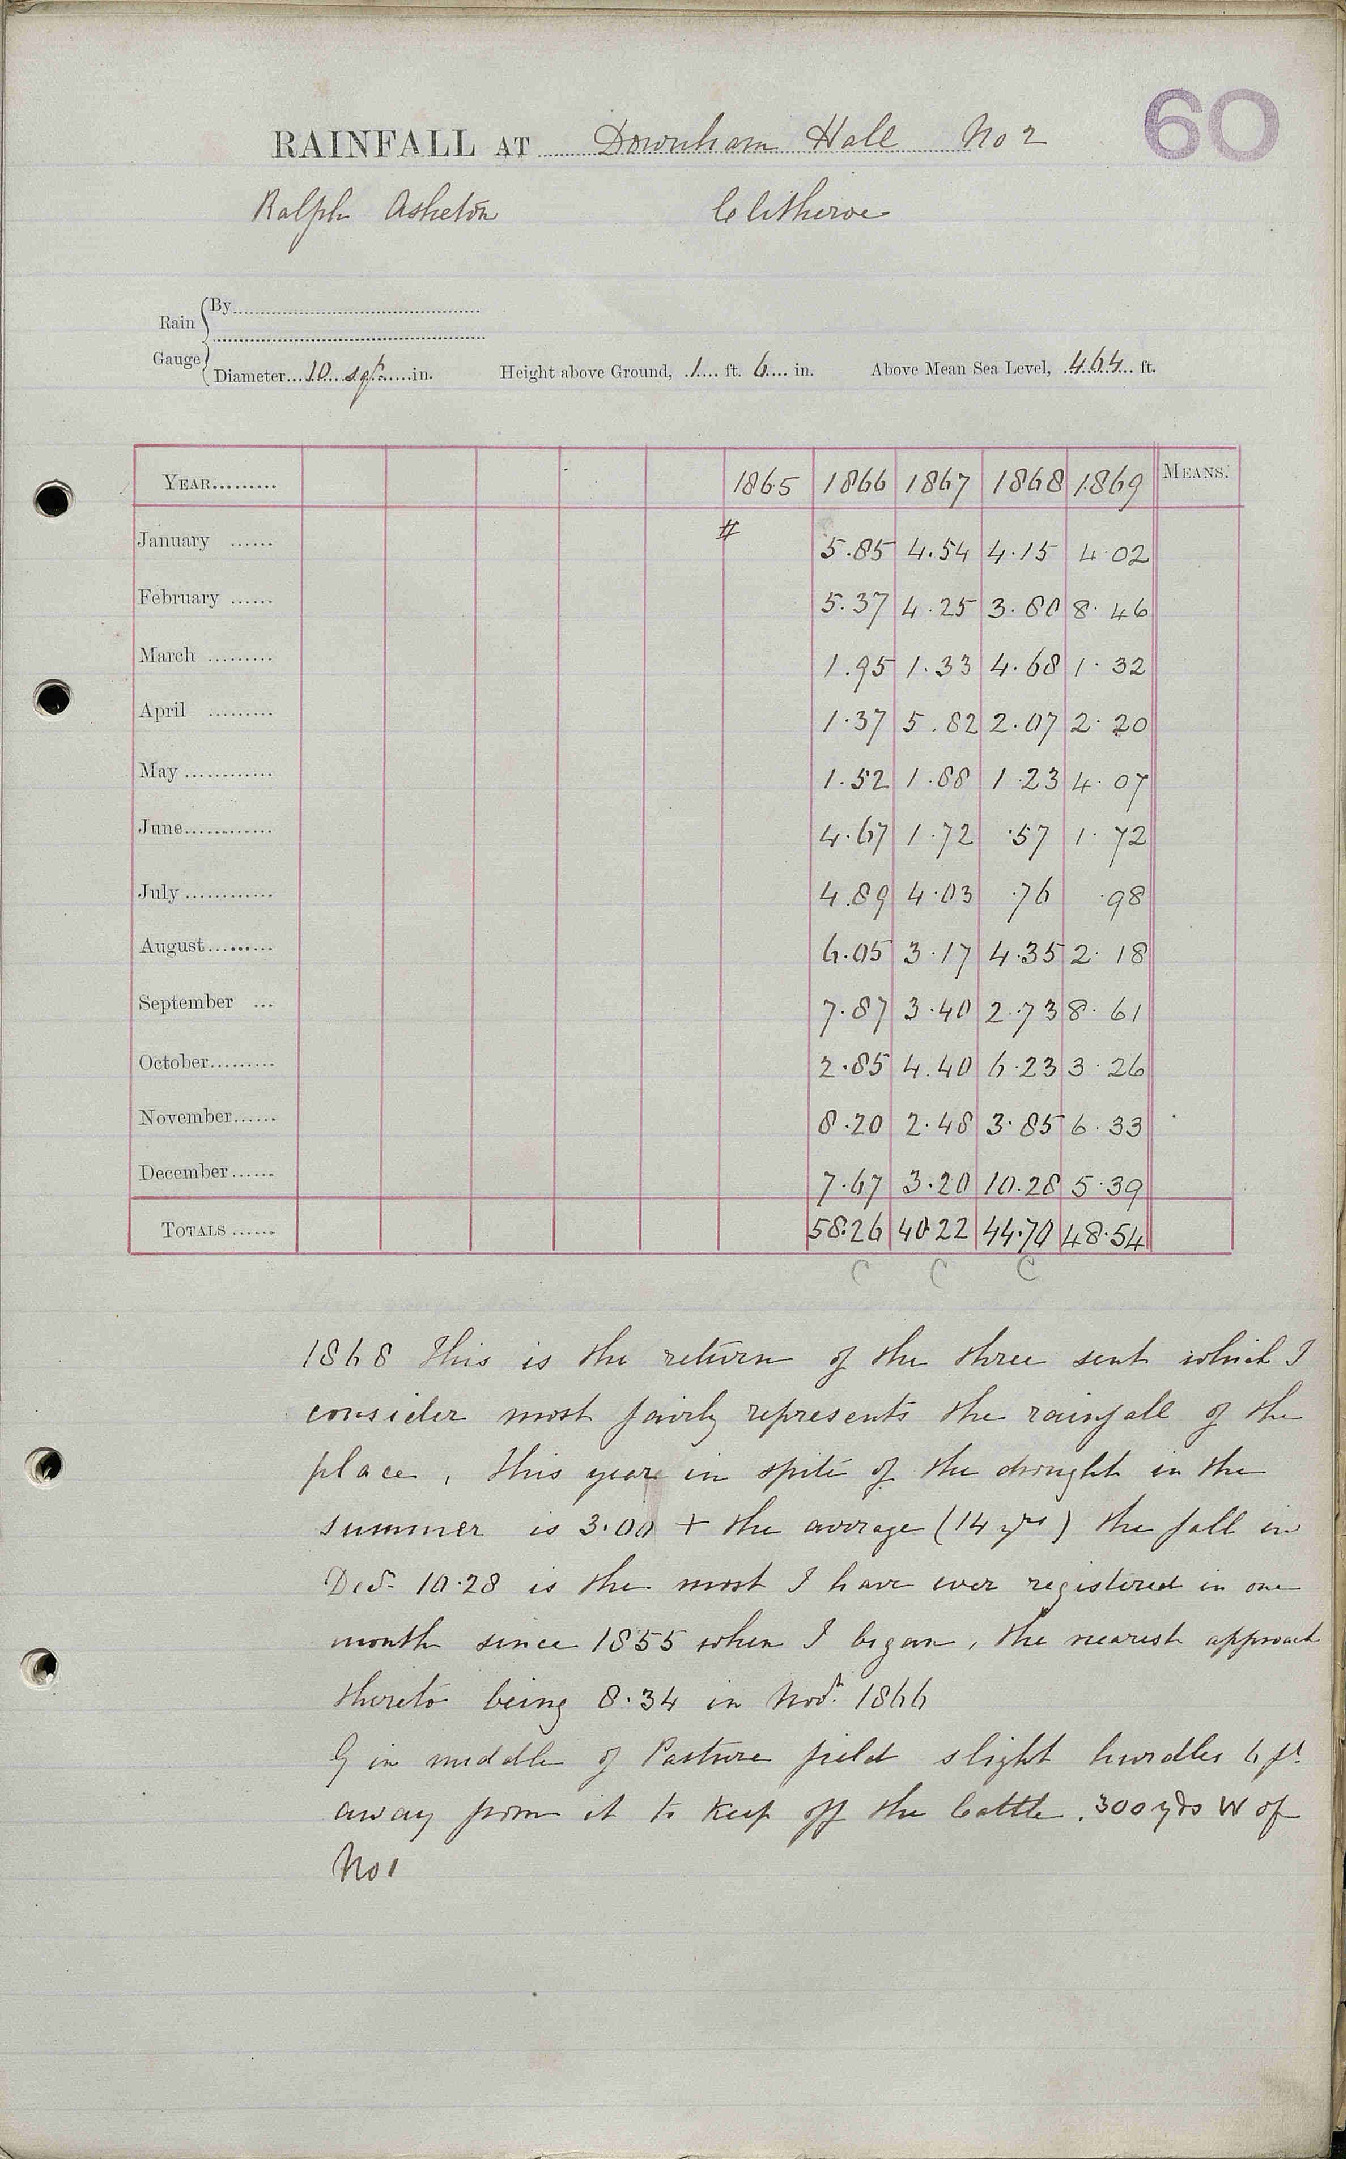 60
RAINFALL AT Downham Hall No 2
Ralph Asheton Clitheroe
Rain Gauge
By
Diameter 10 sq in. Height above Ground, 1 ft. 6 in. Above Mean Sea Level, 464 ft.
YEAR 1865 1866 1867 1868 1869 MEANS.
January # 5.85 4.54 4.15 4.02
February 5.37 4.25 3.80 8.46
March 1.95 1.33 4.68 1.32
April 1.37 5.82 2.07 2.20
May 1.52 1.88 1.23 4.07
June 4.67 1.72 .57 1.72
July 4.89 4.03 .76 .98
August 6.05 3.17 4.35 2.18
September 7.87 3.40 2.73 8.61
October 2.85 4.40 6.23 3.26
November 8.20 2.48 3.85 6.33
December 7.67 3.20 10.28 5.39
TOTALS 58.26 40.22 44.70 48.54
C C C
1868 This is the return of the three sent which I
consider most fairly represents the rainfall of the
place, this year in spite of the drought in the
summer is 3.00 + the average (14 yrs) the fall in
Decr 10.28 is the most I have ever registered in one
month since 1855 when I began, the nearest approach
thereto being 8.34 in Novr 1866
G in middle of Pasture field slight hurdles 6 ft
away from it to keep off the Cattle. 300 yds W of
No 1